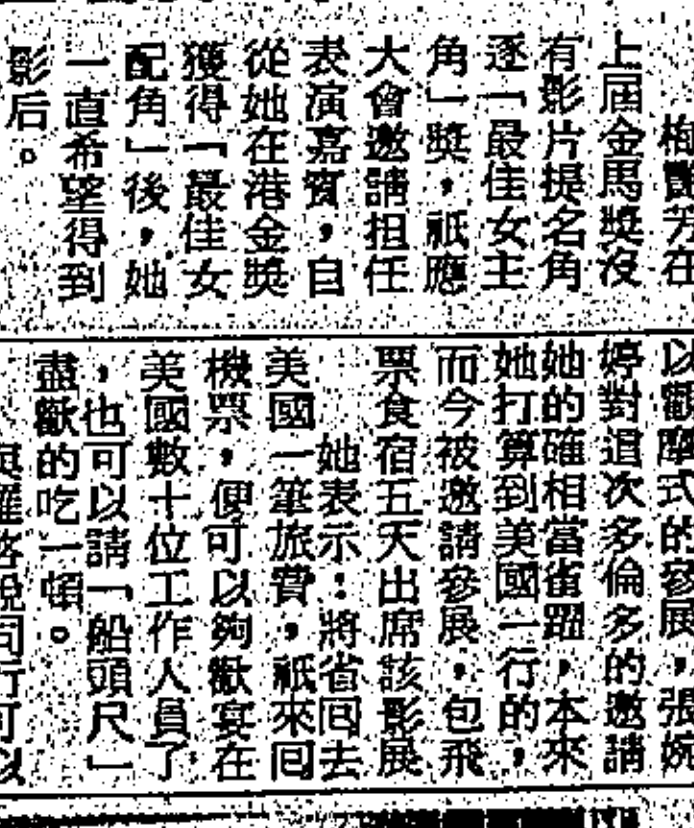 梅艷芳在
上屆金馬獎沒
有影片提名角
逐「最佳女主
角」獎，祇應
大會邀請担任
表演嘉賓，自
從她在港金獎
獲得「最佳女
配角」後，她
一直希望得到
影后。
以觀摩式的參展，張婉
婷對這次多倫多的邀請
她的確相當雀躍，本來
她打算到美國一行的，
而今被邀請參展，包飛
票食宿五天出席該影展
她表示：將省回去
美國一筆旅費，祇來回
機票，便可以夠歡宴在
美國數十位工作人員了
，也可以請「船頭尺」
盡歡的吃一頓。